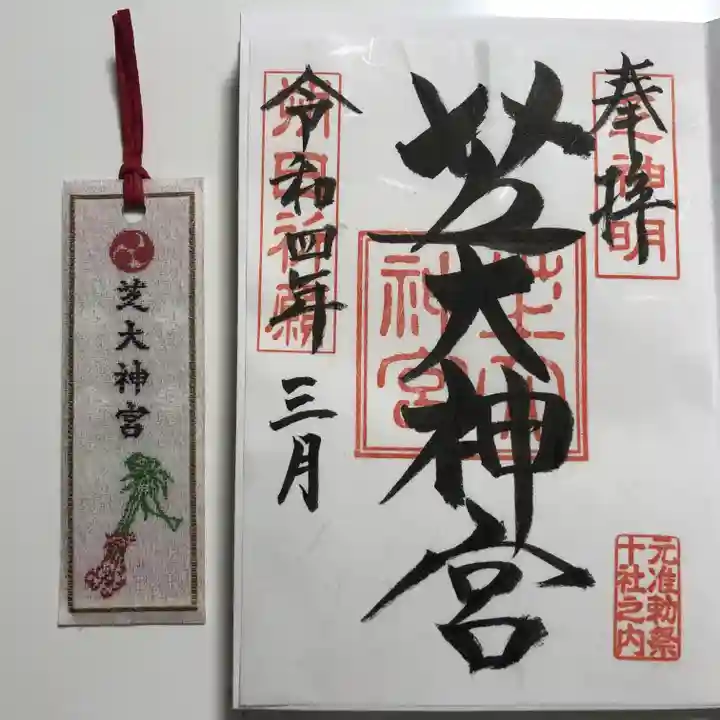 奉拝
芝神明
芝大神宮
芝大神宮
令和四年
三月
元准勅祭
十社之内
芝大神宮